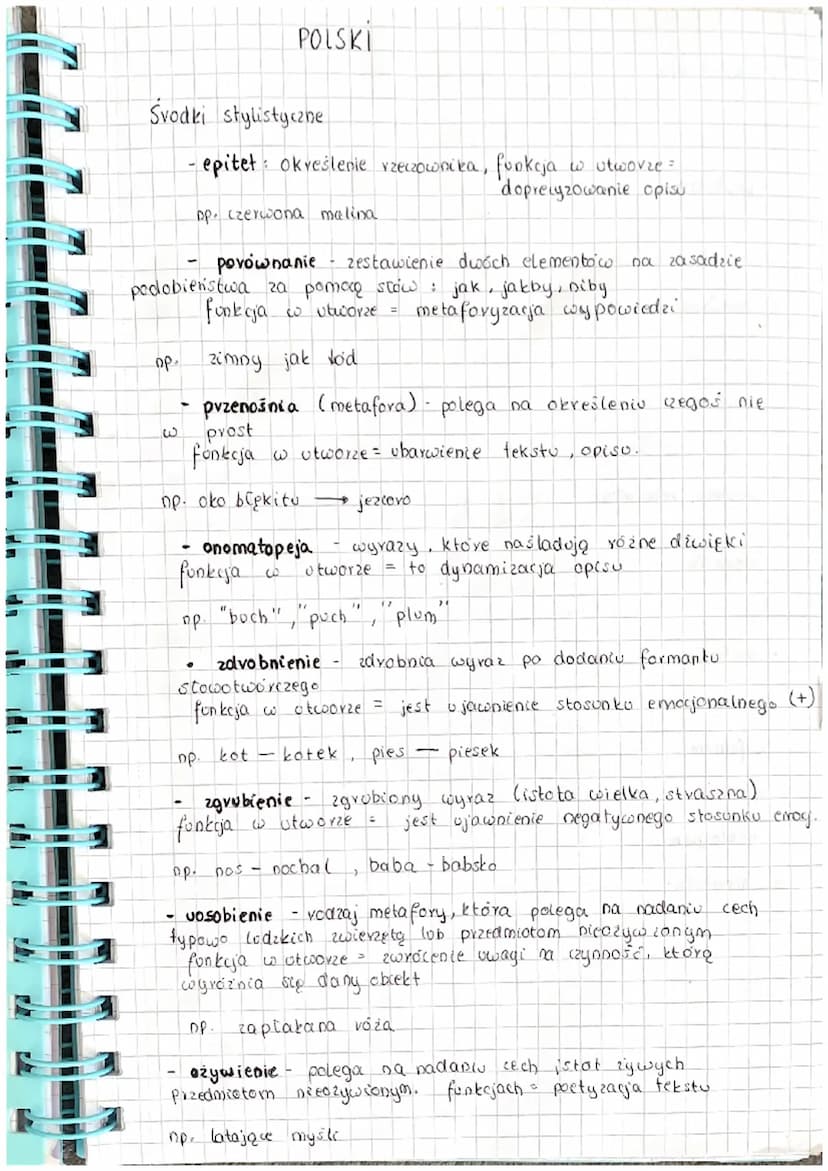 POLSKI
Środki stylistyczne
- epitet : określenie rzeczownika, funkcja w utworze =
doprecyzowanie opisu
np. czerwona malina
- porównanie - zestawienie dwóch elementów na zasadzie
podobieństwa za pomocą słów : jak, jakby, niby
funkcja w utworze = metaforyzacja wypowiedzi
np. zimny jak lód
- przenośnia (metafora) - polega na określeniu czegoś nie
w prost
funkcja w utworze = ubarwienie tekstu, opisu.
np. oko błękitu → jezioro
- onomatopeja - wyrazy, które naśladują różne dźwięki
funkcja w utworze = to dynamizacja opisu
np. "buch", "puch", "plum"
• zdrobnienie - zdrobnia wyraz po dodaniu formantu
słowotwórczego
funkcja w utworze = jest ujawnienie stosunku emocjonalnego (+)
np. kot – kotek, pies — piesek
- zgrubienie - zgrubiony wyraz (istota wielka, straszna)
funkcja w utworze = jest ujawnienie negatywnego stosunku emocj.
np. nos – nochal, baba - babsko
- uosobienie - rodzaj metafory, która polega na nadaniu cech
typowo ludzkich zwierzętą lub przedmiotom nieożywionym
funkcja w utworze = zwrócenie uwagi na czynność, którą
wyróżnia się dany obiekt
np. zapłakana róża
- ożywienie - polega na nadaniu cech istot żywych
przedmiotom nieożywionym. funkcjach = poetyzacja tekstu
np. latające myśli